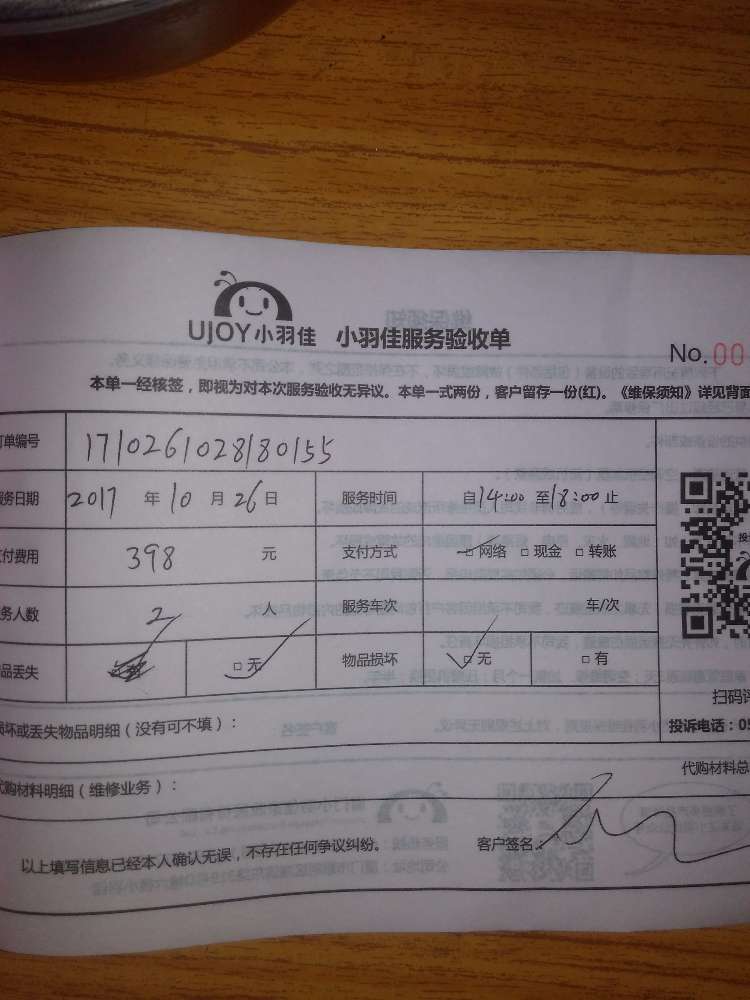 UJOY小羽佳 小羽佳服务验收单
No.00
本单一经核签，即视为对本次服务验收无异议。本单一式两份，客户留存一份(红)。《维保须知》详见背面
单编号 1710261028180155
务日期 2017 年 10 月 26 日 服务时间 自14:00 至18:00止
付费用 398 元 支付方式 □ 网络 □ 现金 □ 转账
务人数 2 人 服务车次 车/次
品丢失 □ 无 物品损坏 □ 无 □ 有
扫码评
损坏或丢失物品明细（没有可不填）： 投诉电话：05
代购材料明细（维修业务）： 代购材料总
以上填写信息已经本人确认无误，不存在任何争议纠纷。 客户签名：